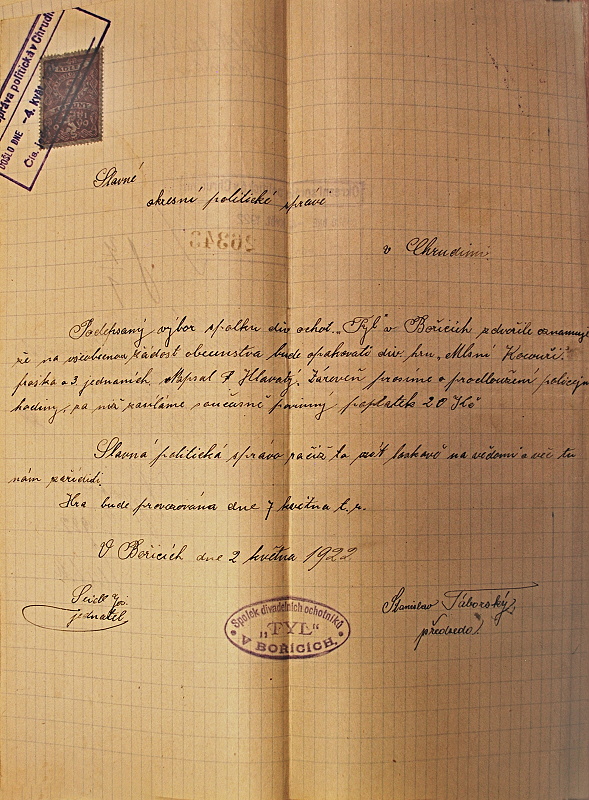 správa politická v Chrud
DOŠLO DNE -4. Kvě
Čís. j.
Slavné
okresní politické správě
v Chrudimi.
Podepsaný výbor spolku div. ochot. „Tyl“ v Bořicích zdvořile oznamuje
že na všeobecnou žádost obecenstva bude opakovati div. hru „Mlsní Kocouři“
fraška o 3. jednáních. Napsal Hlavatý. Zároveň prosíme o prodloužení policejn
hodiny, za niž zasíláme současně povinný poplatek 20 Kč
Slavná politická správo račiž to vzít laskavě na vědomí a věc tu
nám zařídidi.
Hra bude provozována dne 7 května t. r.
V Bořicích dne 2 května 1922
Seidl Jos.
jednatel
Spolek divadelních ochotníků
„TYL“
V BOŘICÍCH.
Stanislav Táborský
předseda.
26343